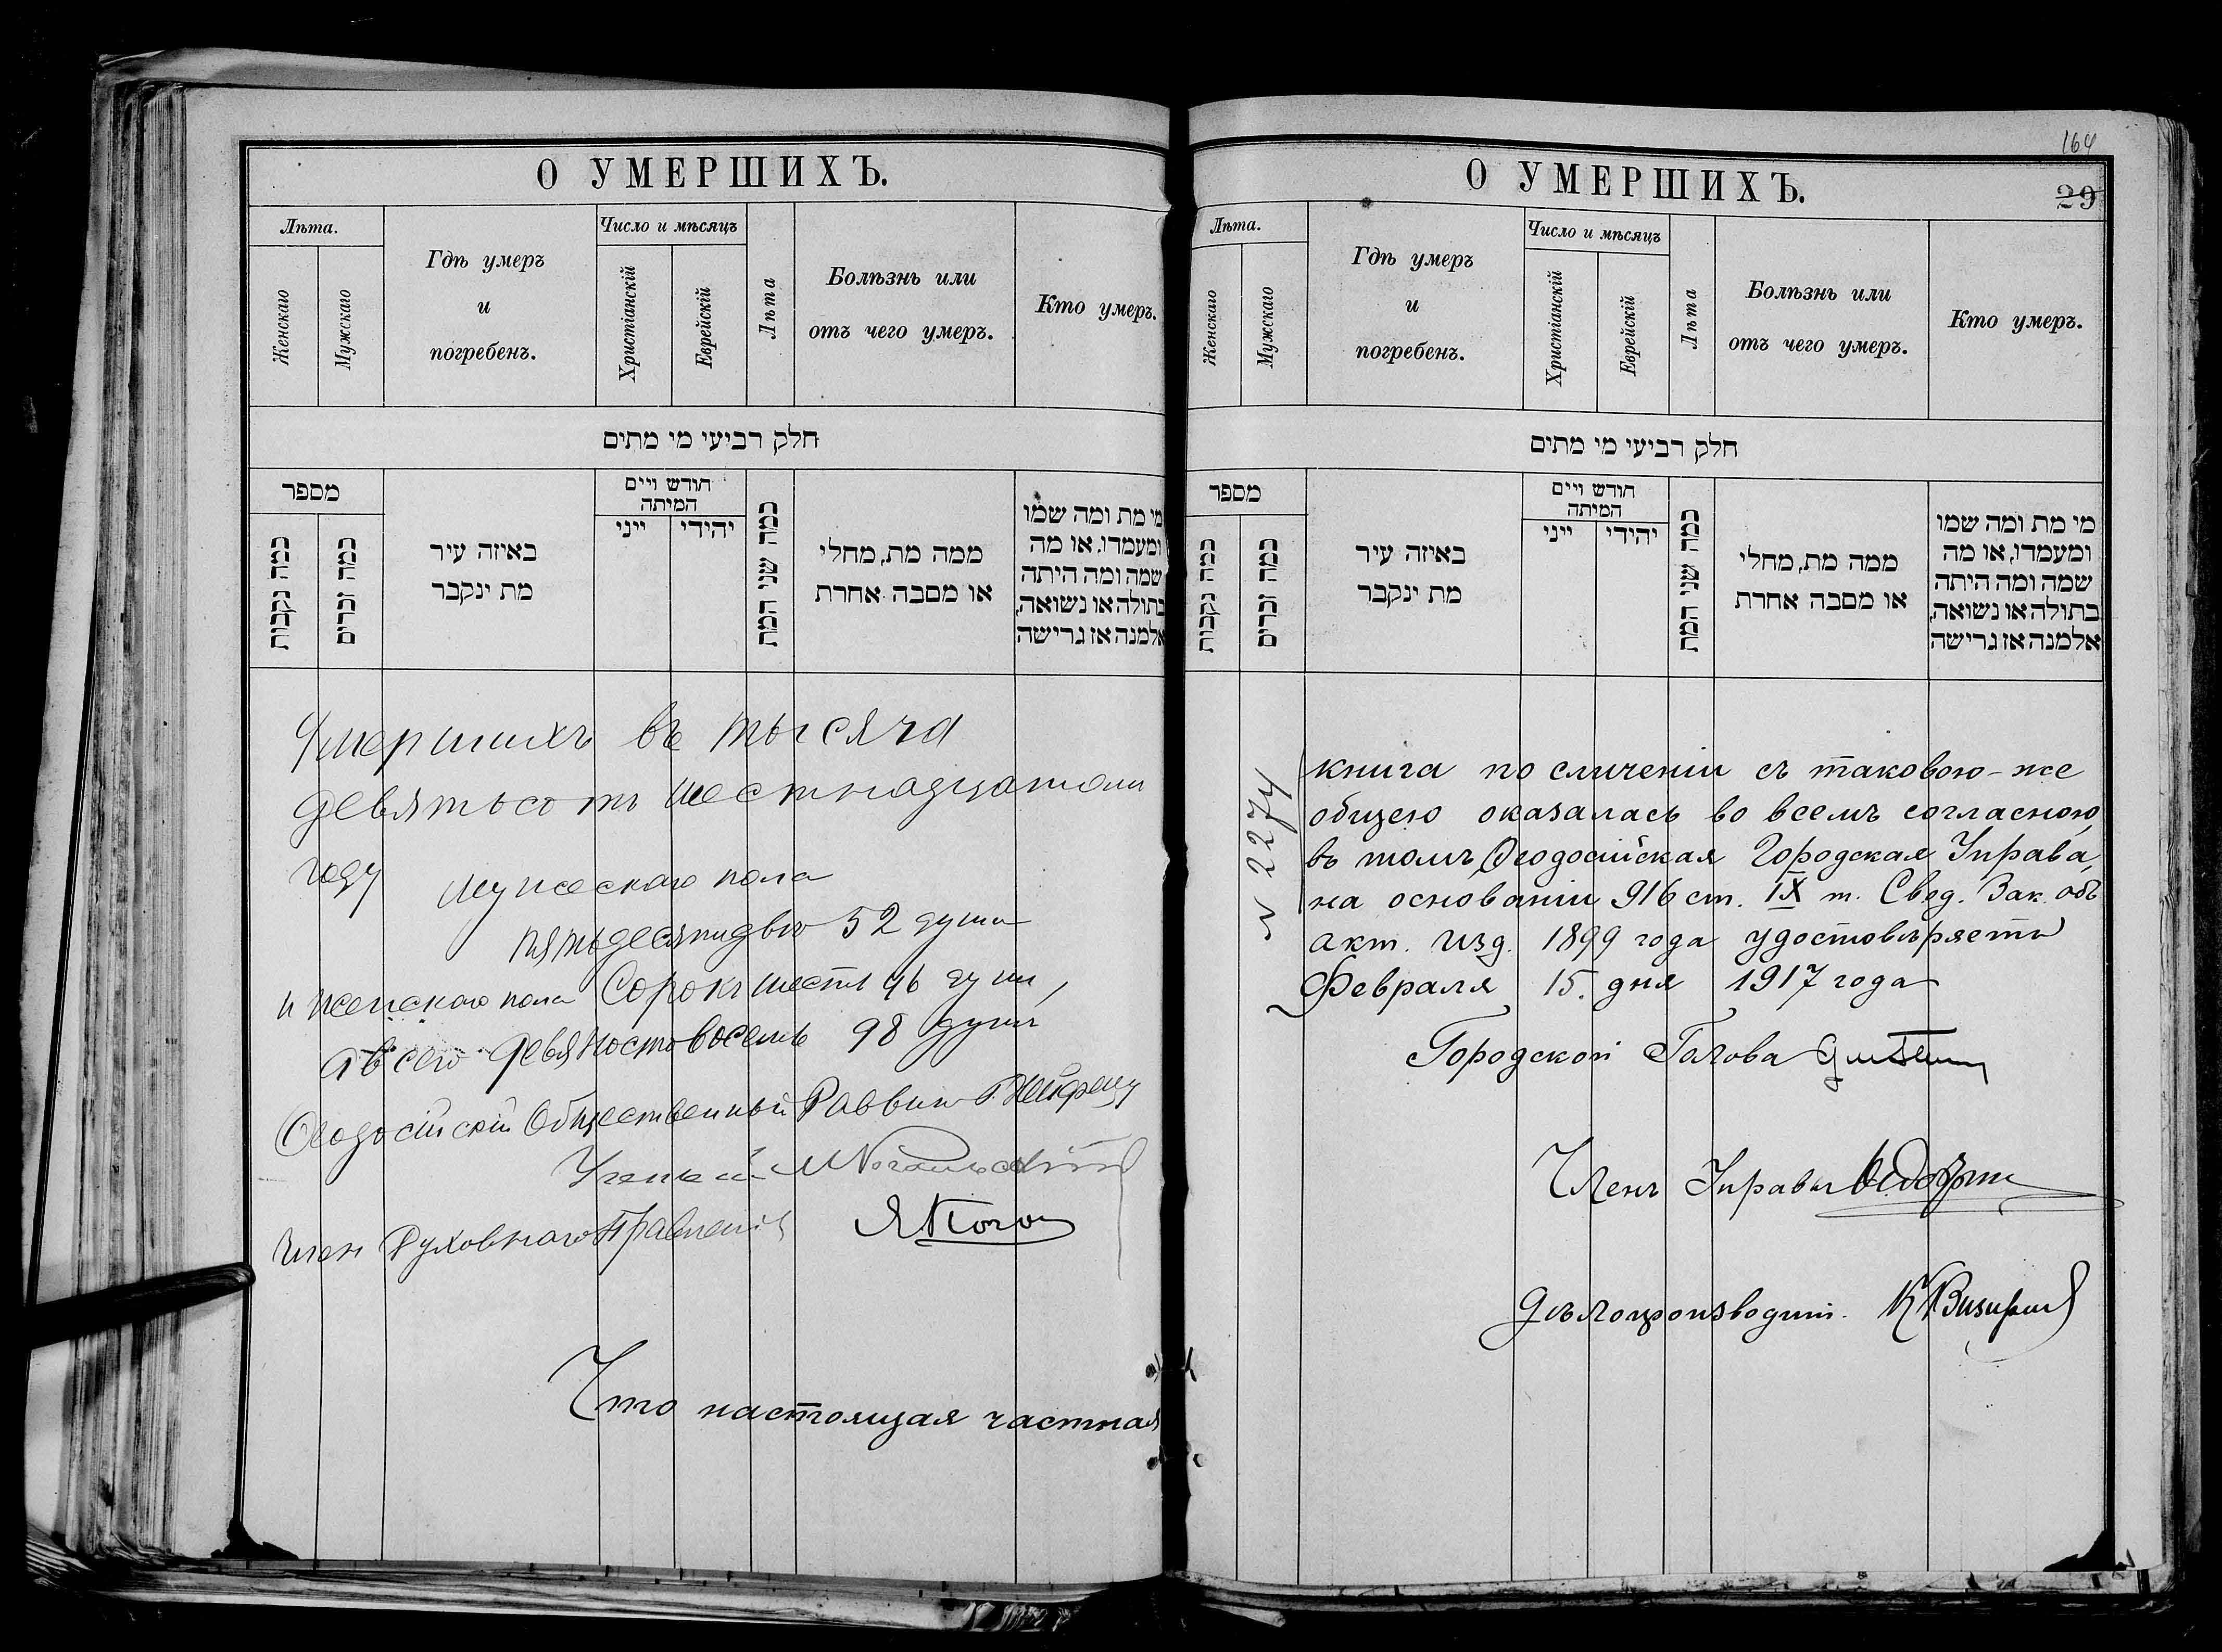 О УМЕРШИХЪ.
Лѣта.
Женскаго
Мужскаго
Гдѣ умеръ
и
погребенъ.
Число и мѣсяцъ
Христіанскій
Еврейскій
Лѣта
Болѣзнь или
отъ чего умеръ.
Кто умеръ.
חלק רביעי מי מתים
מספר
כמה נקבות
כמה זכרים
באיזה עיר
מת ינקבר
חודש ויים
המיתה
ייני
יהידי
כמה שני המת
ממה מת, מחלי
או מסבה אחרת
מי מת ומה שמו
ומעמדו, או מה
שמה ומה היתה
בתולה או נשואה,
אלמנה אז גרישה
Умершихъ въ тысяча
девятьсотъ шестнадцатомъ
году
мужескаго пола
пятьдесятидвѣ 52 души
и женскаго пола Сорокъ шесть 46 душъ,
а всего девяностовосемь 98 душъ
Ѳеодосійскій Общественный Раввинъ
Ученый
Членъ Духовнаго Правленія
Что настоящая частная
164
О УМЕРШИХЪ.
29
Лѣта.
Женскаго
Мужскаго
Гдѣ умеръ
и
погребенъ.
Число и мѣсяцъ
Христіанскій
Еврейскій
Лѣта
Болѣзнь или
отъ чего умеръ.
Кто умеръ.
חלק רביעי מי מתים
מספר
כמה נקבות
כמה זכרים
באיזה עיר
מת ינקבר
חודש ויים
המיתה
ייני
יהידי
כמה שני המת
ממה מת, מחלי
או מסבה אחרת
מי מת ומה שמו
ומעמדו, או מה
שמה ומה היתה
בתולה או נשואה,
אלמנה אז גרישה
№ 2274
книга по сличеніи съ таковою-же
общею оказалась во всемъ согласною,
въ томъ Ѳеодосійская Городская Управа,
на основаніи 916 ст. IX т. Свод. Зак. объ
акт. изд. 1899 года удостовѣряетъ
Февраля 15. дня 1917 года
Городской Голова
Членъ Управы
Дѣлопроизводит.